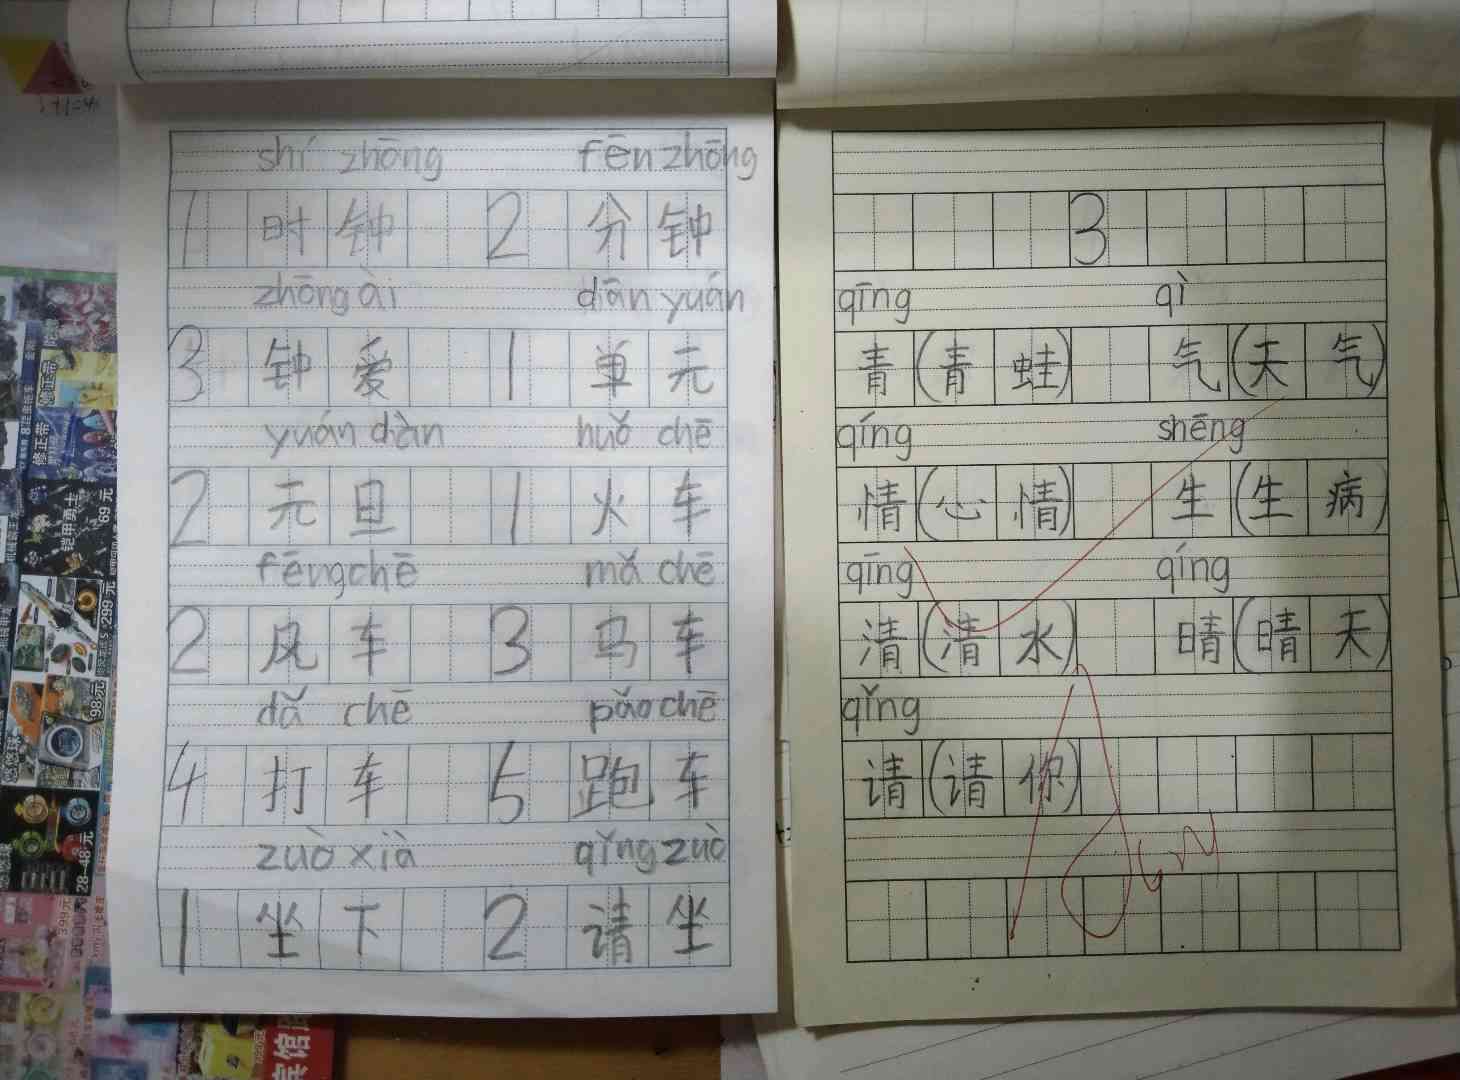 shí zhōng fēn zhōng
1 时钟 2 分钟
zhōng ài dān yuán
3 钟爱 1 单元
yuán dàn huǒ chē
2 元旦 1 火车
fēng chē mǎ chē
2 风车 3 马车
dǎ chē pǎo chē
4 打车 5 跑车
zuò xià qǐng zuò
1 坐下 2 请坐
3
qīng qì
青(青蛙) 气(天气)
qíng shēng
情(心情) 生(生病)
qīng qíng
清(清水) 晴(晴天)
qǐng
请(请你)
修正带
修正带
铠甲勇士
69元
299元
98元
28-48元
399元
宾馆